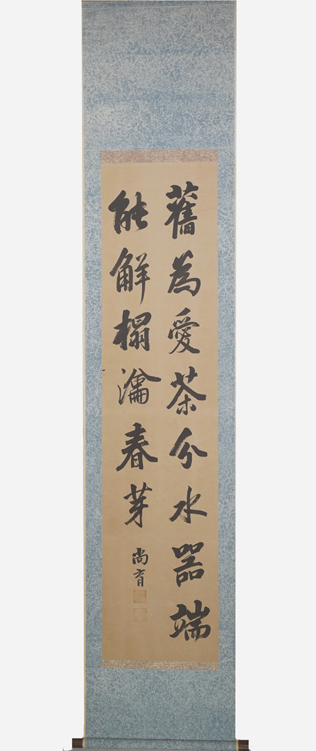 舊為愛茶分水器端
能解榻瀹春芽
尚育